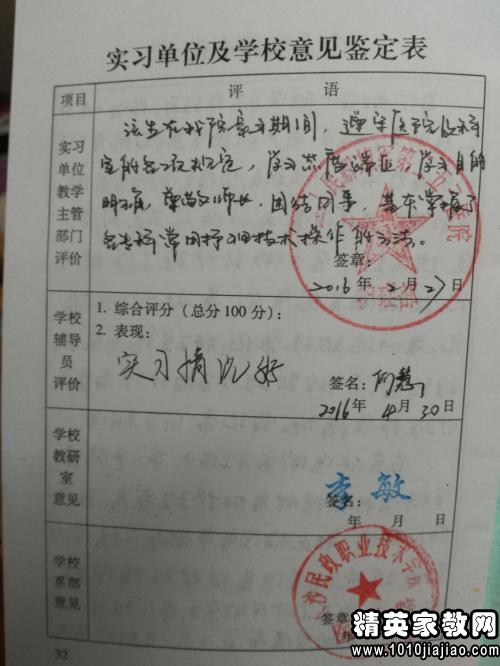 实习单位及学校意见鉴定表
项目
评 语
实习
单位
教学
主管
部门
评价
该生在我院实习期间，遵守医院及科
室的各项规定，学习态度端正，学习目的
明确，尊敬师长，团结同事，基本掌握了
各专科常用护理技术操作的方法。
签章：
2016 年 2 月 27 日
学校
辅导
员
评价
1. 综合评分（总分 100 分）：
2. 表现：
实习情况好
签名：
2016 年 4 月 30 日
学校
教研
室
意见
李敏
签名：
年 月 日
学校
系部
意见
沙民政职业技术学
签章
32
精英家教网
www.1010jiajiao.com